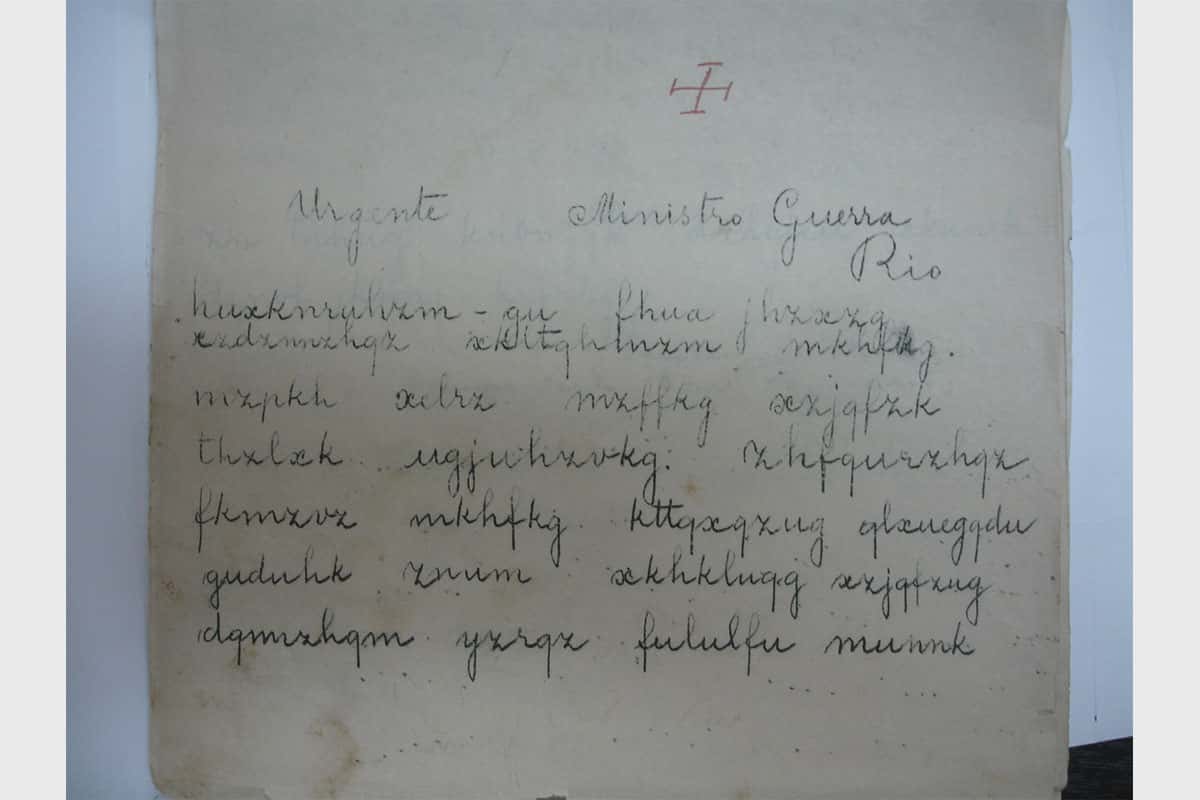 Urgente Ministro Guerra
Rio
huxknruhzm-gu fhua jhzxzg
xzdznnzhqz xkltqhmzm mkhfkg.
mzpkh xelrz mzffkg xzjqfzk
thzlxk ugjuhzvkg. zhfqnrzhqz
fkmzvz mkhfkg kttqxqzug qlxnegqdu
guduhk znum xkhkluqg xzjqfzug
dqnnzhqm yzrqz fululfu munnk